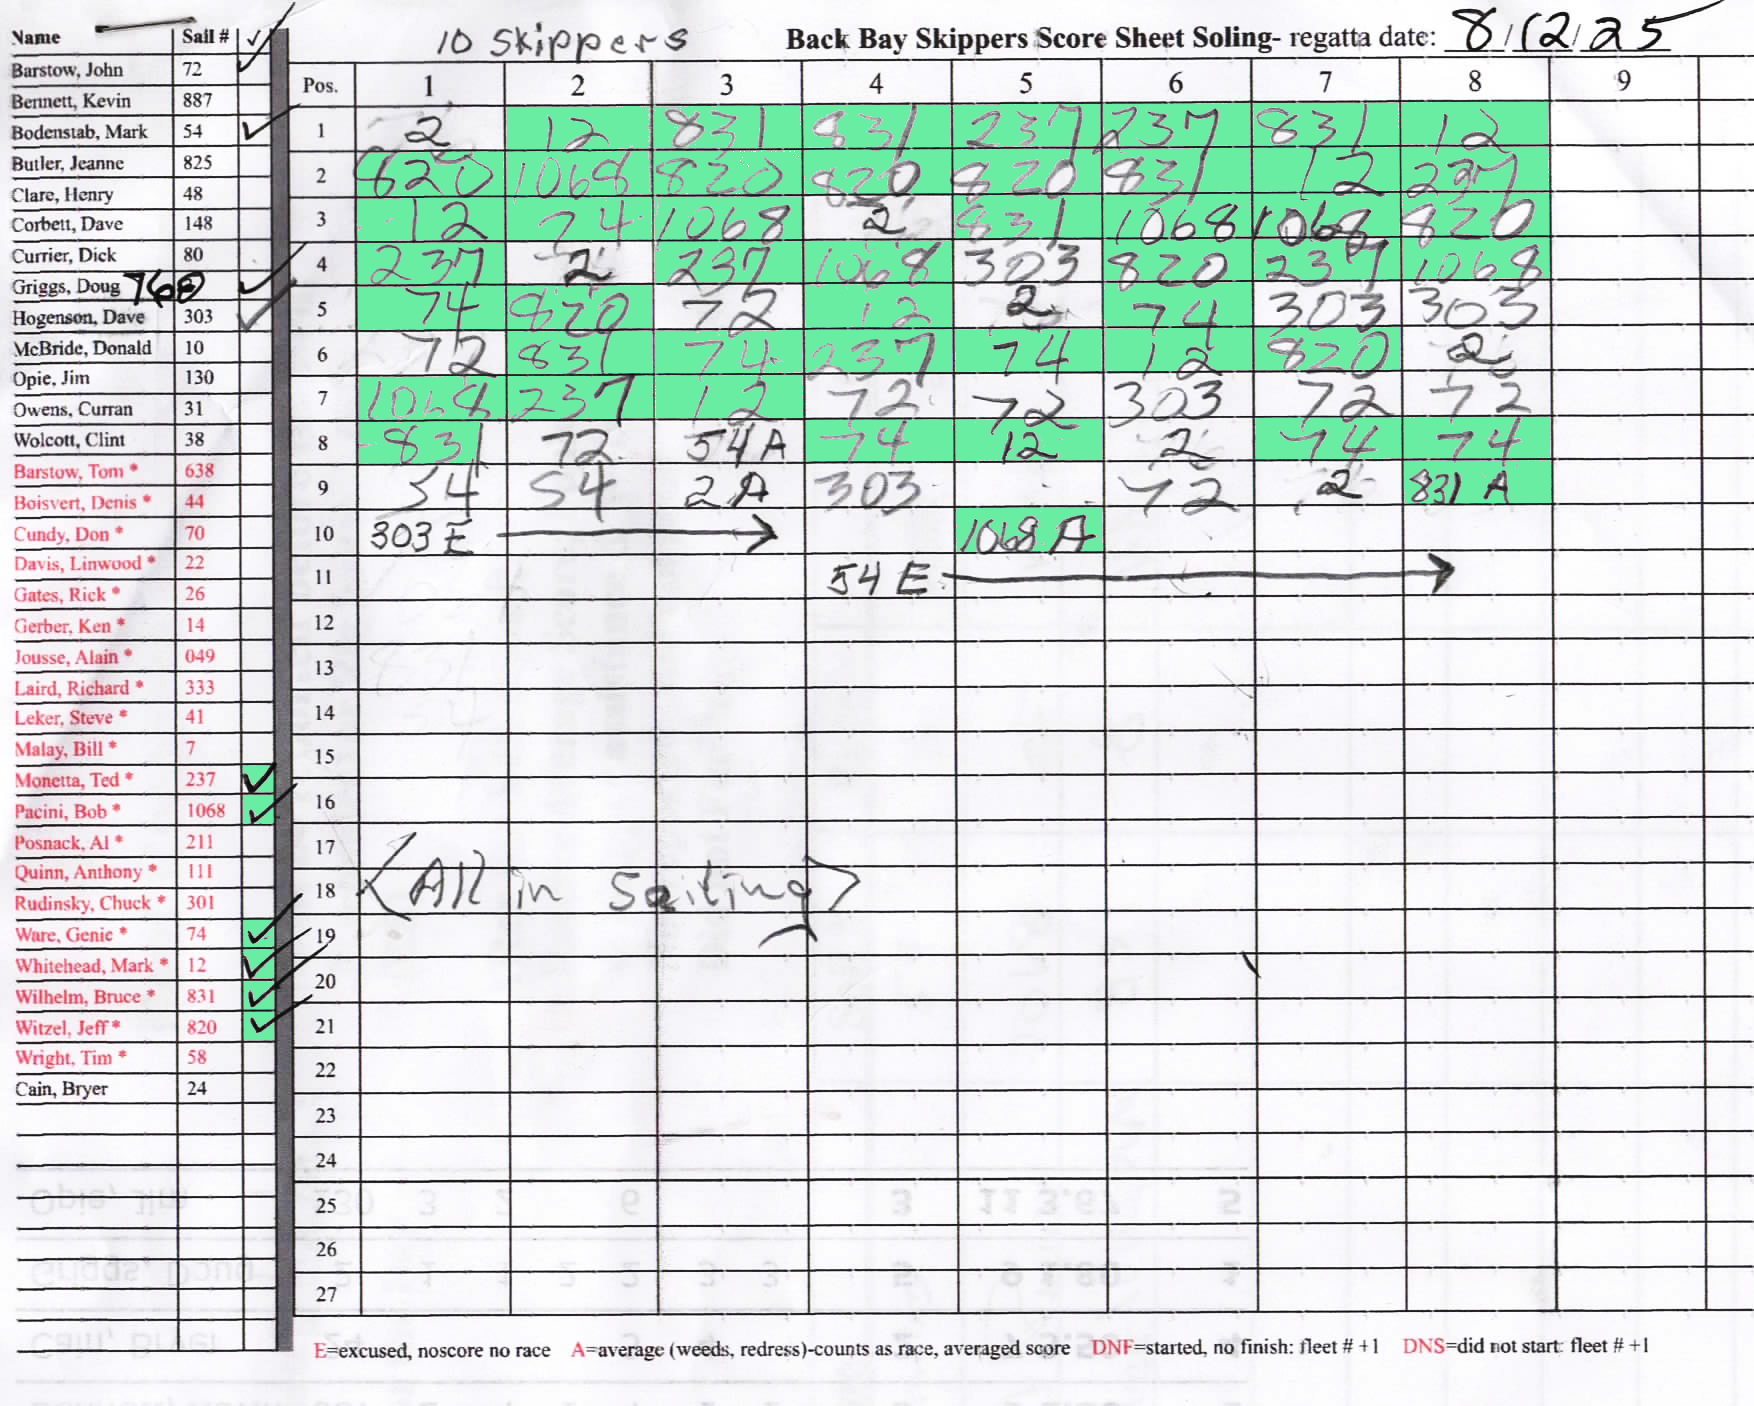 10 Skippers Back Bay Skippers Score Sheet Soling- regatta date: 8/12/25
Name Sail # ✓
Barstow, John 72 ✓
Bennett, Kevin 887
Bodenstab, Mark 54 ✓
Butler, Jeanne 825
Clare, Henry 48
Corbett, Dave 148
Currier, Dick 80
Griggs, Doug ✓
Hogenson, Dave 303 ✓
McBride, Donald 10
Opie, Jim 130
Owens, Curran 31
Wolcott, Clint 38
Barstow, Tom * 638
Boisvert, Denis * 44
Cundy, Don * 70
Davis, Linwood * 22
Gates, Rick * 26
Gerber, Ken * 14
Jousse, Alain * 049
Laird, Richard * 333
Leker, Steve * 41
Malay, Bill * 7
Monetta, Ted * 237 ✓
Pacini, Bob * 1068 ✓
Posnack, Al * 211
Quinn, Anthony * 111
Rudinsky, Chuck * 301
Ware, Genie * 74 ✓
Whitehead, Mark * 12 ✓
Wilhelm, Bruce * 831 ✓
Witzel, Jeff * 820 ✓
Wright, Tim * 58
Cain, Bryer 24
Pos. 1 2 3 4 5 6 7 8 9
1 2 12 831 831 237 237 831 12
2 820 1068 820 820 820 831 12 237
3 12 74 1068 2 831 1068 1068 820
4 237 2 237 1068 303 820 237 1068
5 74 820 72 12 2 74 303 303
6 72 831 74 237 74 12 820 2
7 1068 237 12 72 72 303 72 72
8 831 72 54 A 74 12 2 74 74
9 54 54 2 A 303 72 2 831 A
10 303 E → 1068 A
11 54 E →
12
13
14
15
16
17
18 <All in Sailing>
19
20
21
22
23
24
25
26
27
E=excused, noscore no race A=average (weeds, redress)-counts as race, averaged score DNF=started, no finish: fleet # +1 DNS=did not start: fleet # +1